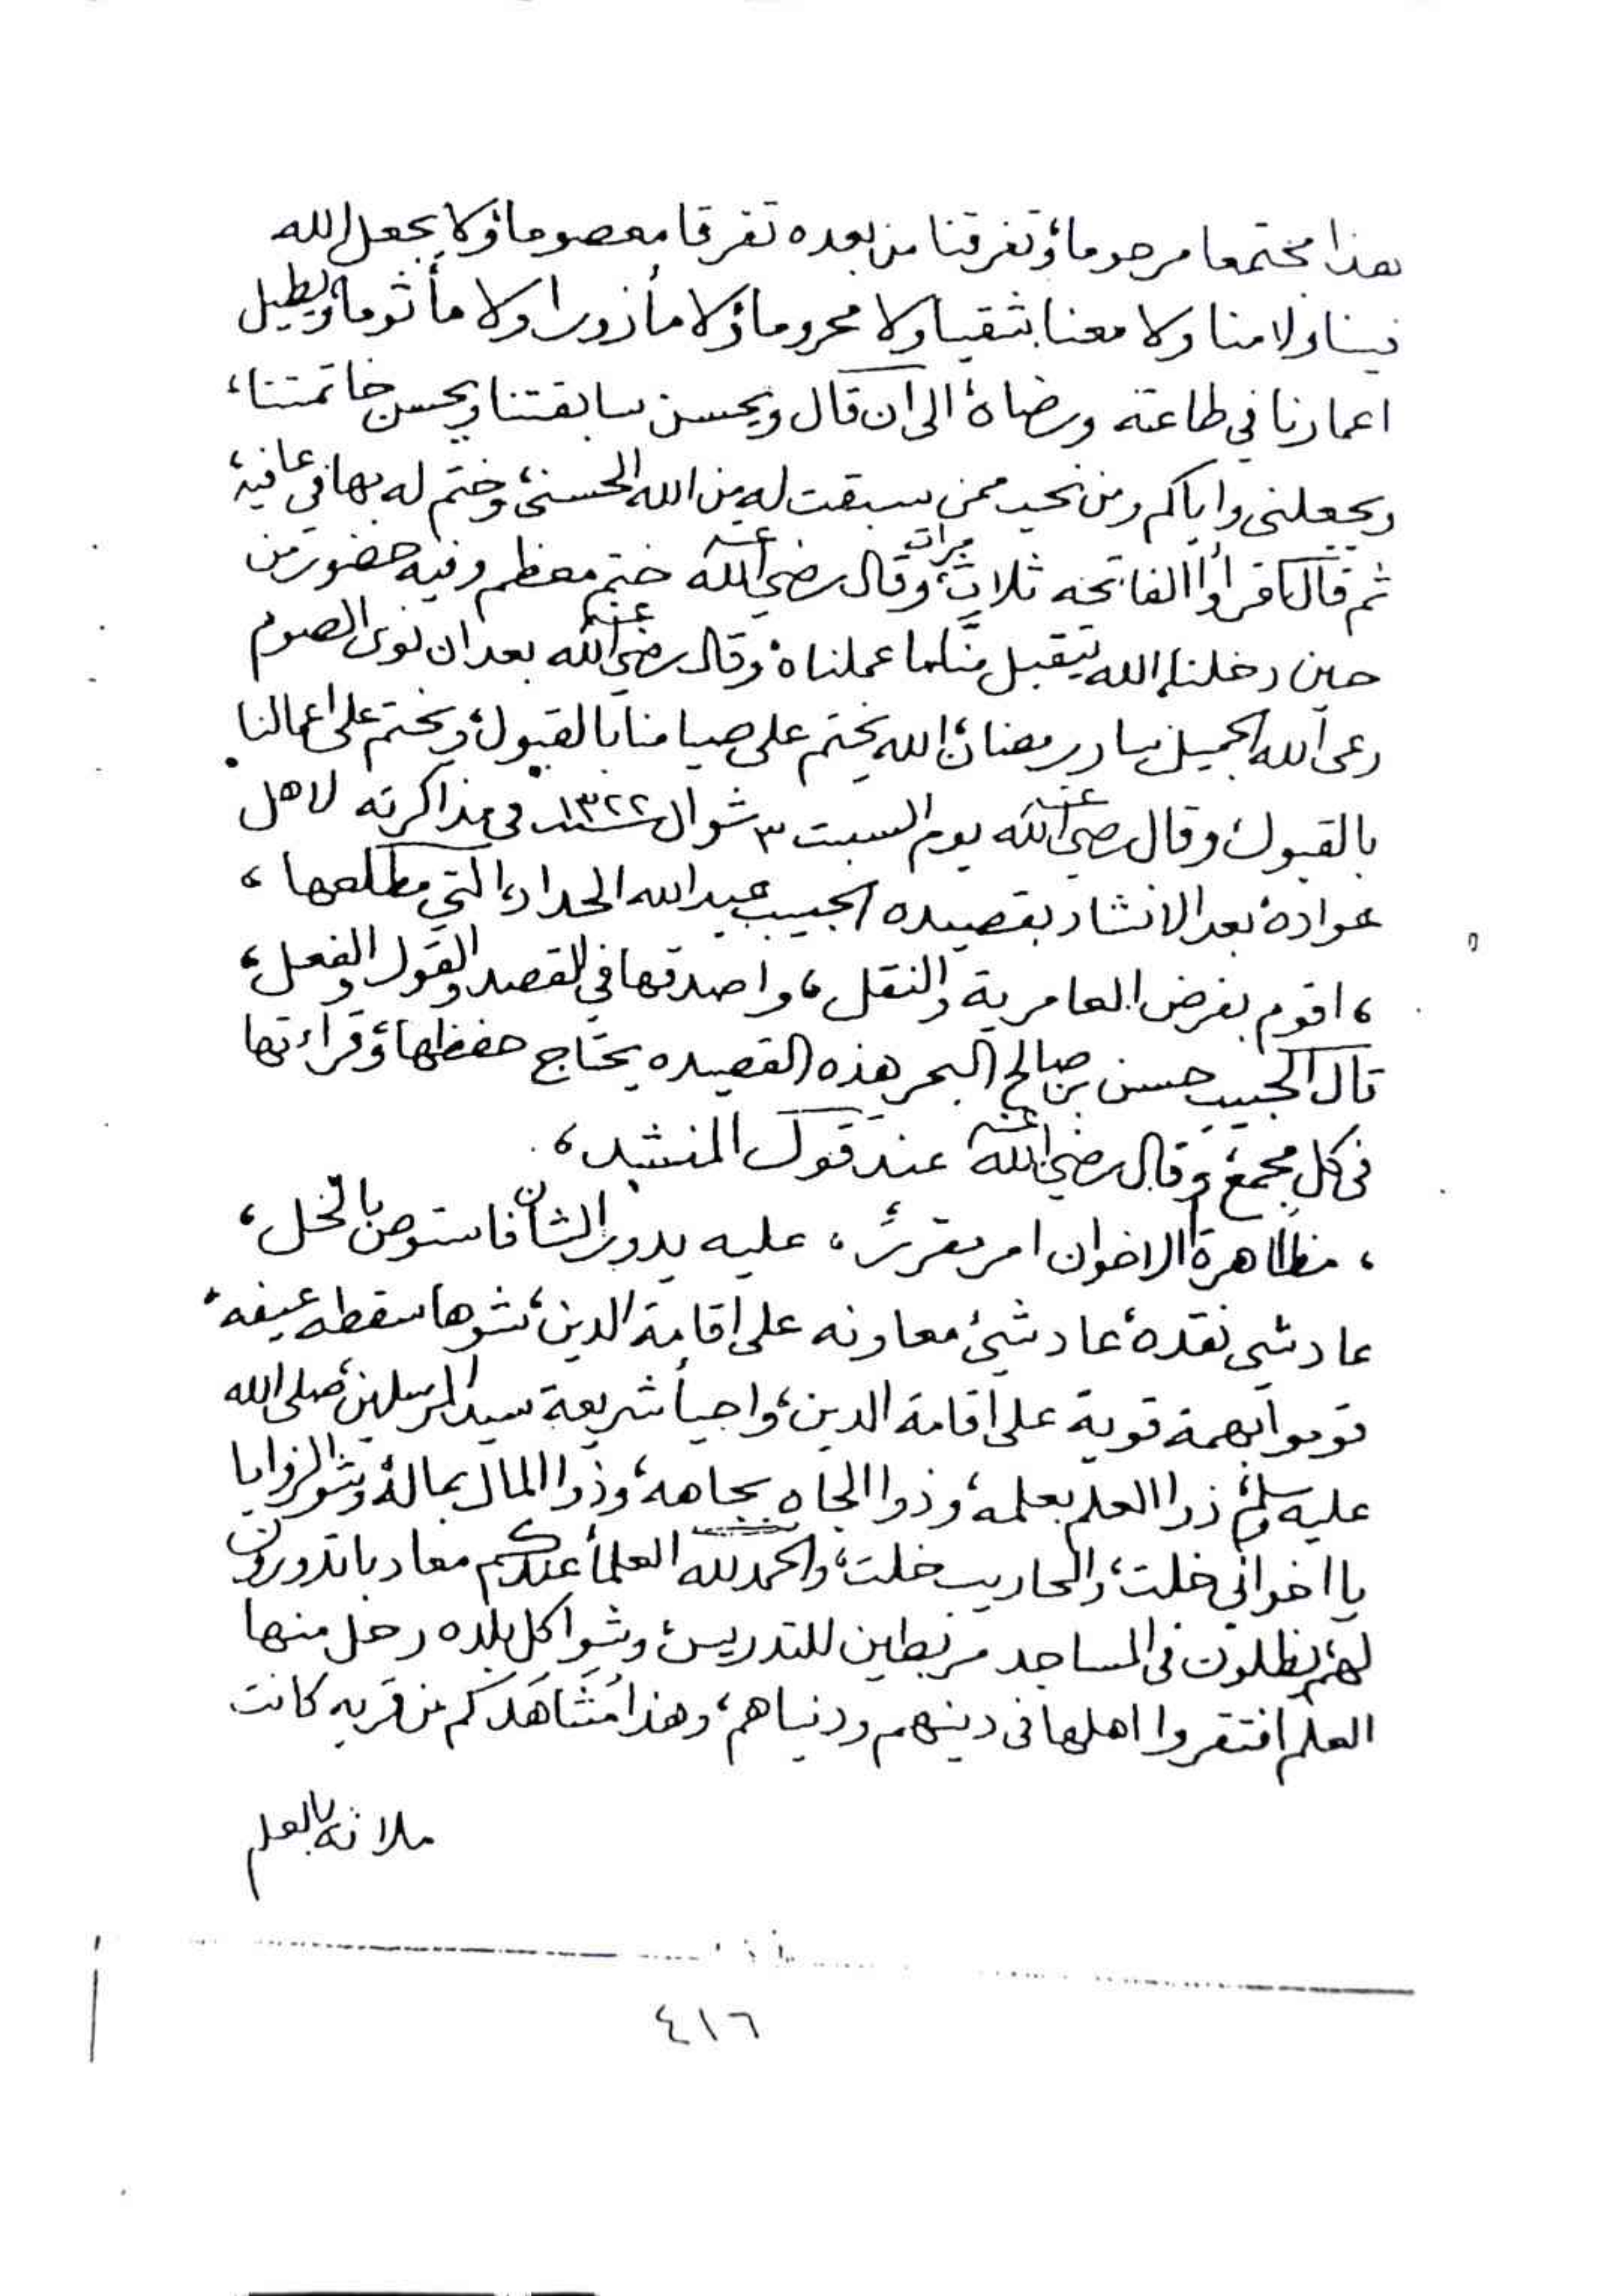 هذا مجتمعا مرحوما، وتفرقنا من بعده تفرقا معصوما، ولا يجعل الله
فينا ولا منا ولا معنا شقيا ولا محروما، ولا مأزورا ولا مأثوما، ويطيل
اعمارنا في طاعته ورضاه، الى ان قال ويحسن سابقتنا ويحسن خاتمتنا،
ويجعلنى واياكم ومن نحب ممن سبقت له من الله الحسنى، وختم له بها في عافية،
ثم قال اقرأوا الفاتحه ثلاث مرات، وقال رضي الله عنه ختم معظم وفيه حضور من
حين دخلنا، الله يتقبل منا ما عملناه، وقال رضي الله عنه بعد ان نوى الصوم
رعى الله الجميل سار رمضان، الله يختم على صيامنا بالقبول، ويختم على اعمالنا
بالقبول، وقال رضي الله عنه يوم السبت ٣ شوال سنة ١٣٢٢ في مذاكرته لاهل
عواده، بعد الانشاد بقصيده الحبيب عبدالله الحداد، التي مطلعها،
، اقوم بفرض العامرية والنقل، واصدقها في القصد والقول والفعل،
قال الحبيب حسن بن صالح البحر هذه القصيده يحتاج حفظها، وقراءتها
فى كل مجمع، وقال رضي الله عنه عند قول المنشد،
، مظاهرة الاخوان امر مقرر، عليه يدور الشأن فاستوص بالخل،
عاد شي نقده، عاد شيء معاونه على اقامة الدين، شوها سقطه عيفه،
قوموا بهمة قوية على اقامة الدين، واحيأ شريعة سيد المرسلين، صلى الله
عليه وسلم، ذوا العلم بعلمه، وذوا الجاه بجاهه، وذوا المال بماله، وشوا الزوايا
يا اخواني خلت، والمحاريب خلت، والحمدلله العلمأ عندكم معاد با تدورون
لهم، يظلون فى المساجد مرتبطين للتدريس، وشوا كل بلده رحل منها
العلم افتقروا اهلها فى دينهم ودنياهم، وهذا مُشَاهَد كم من قريه كانت
ملانه بالعلم
٤١٦